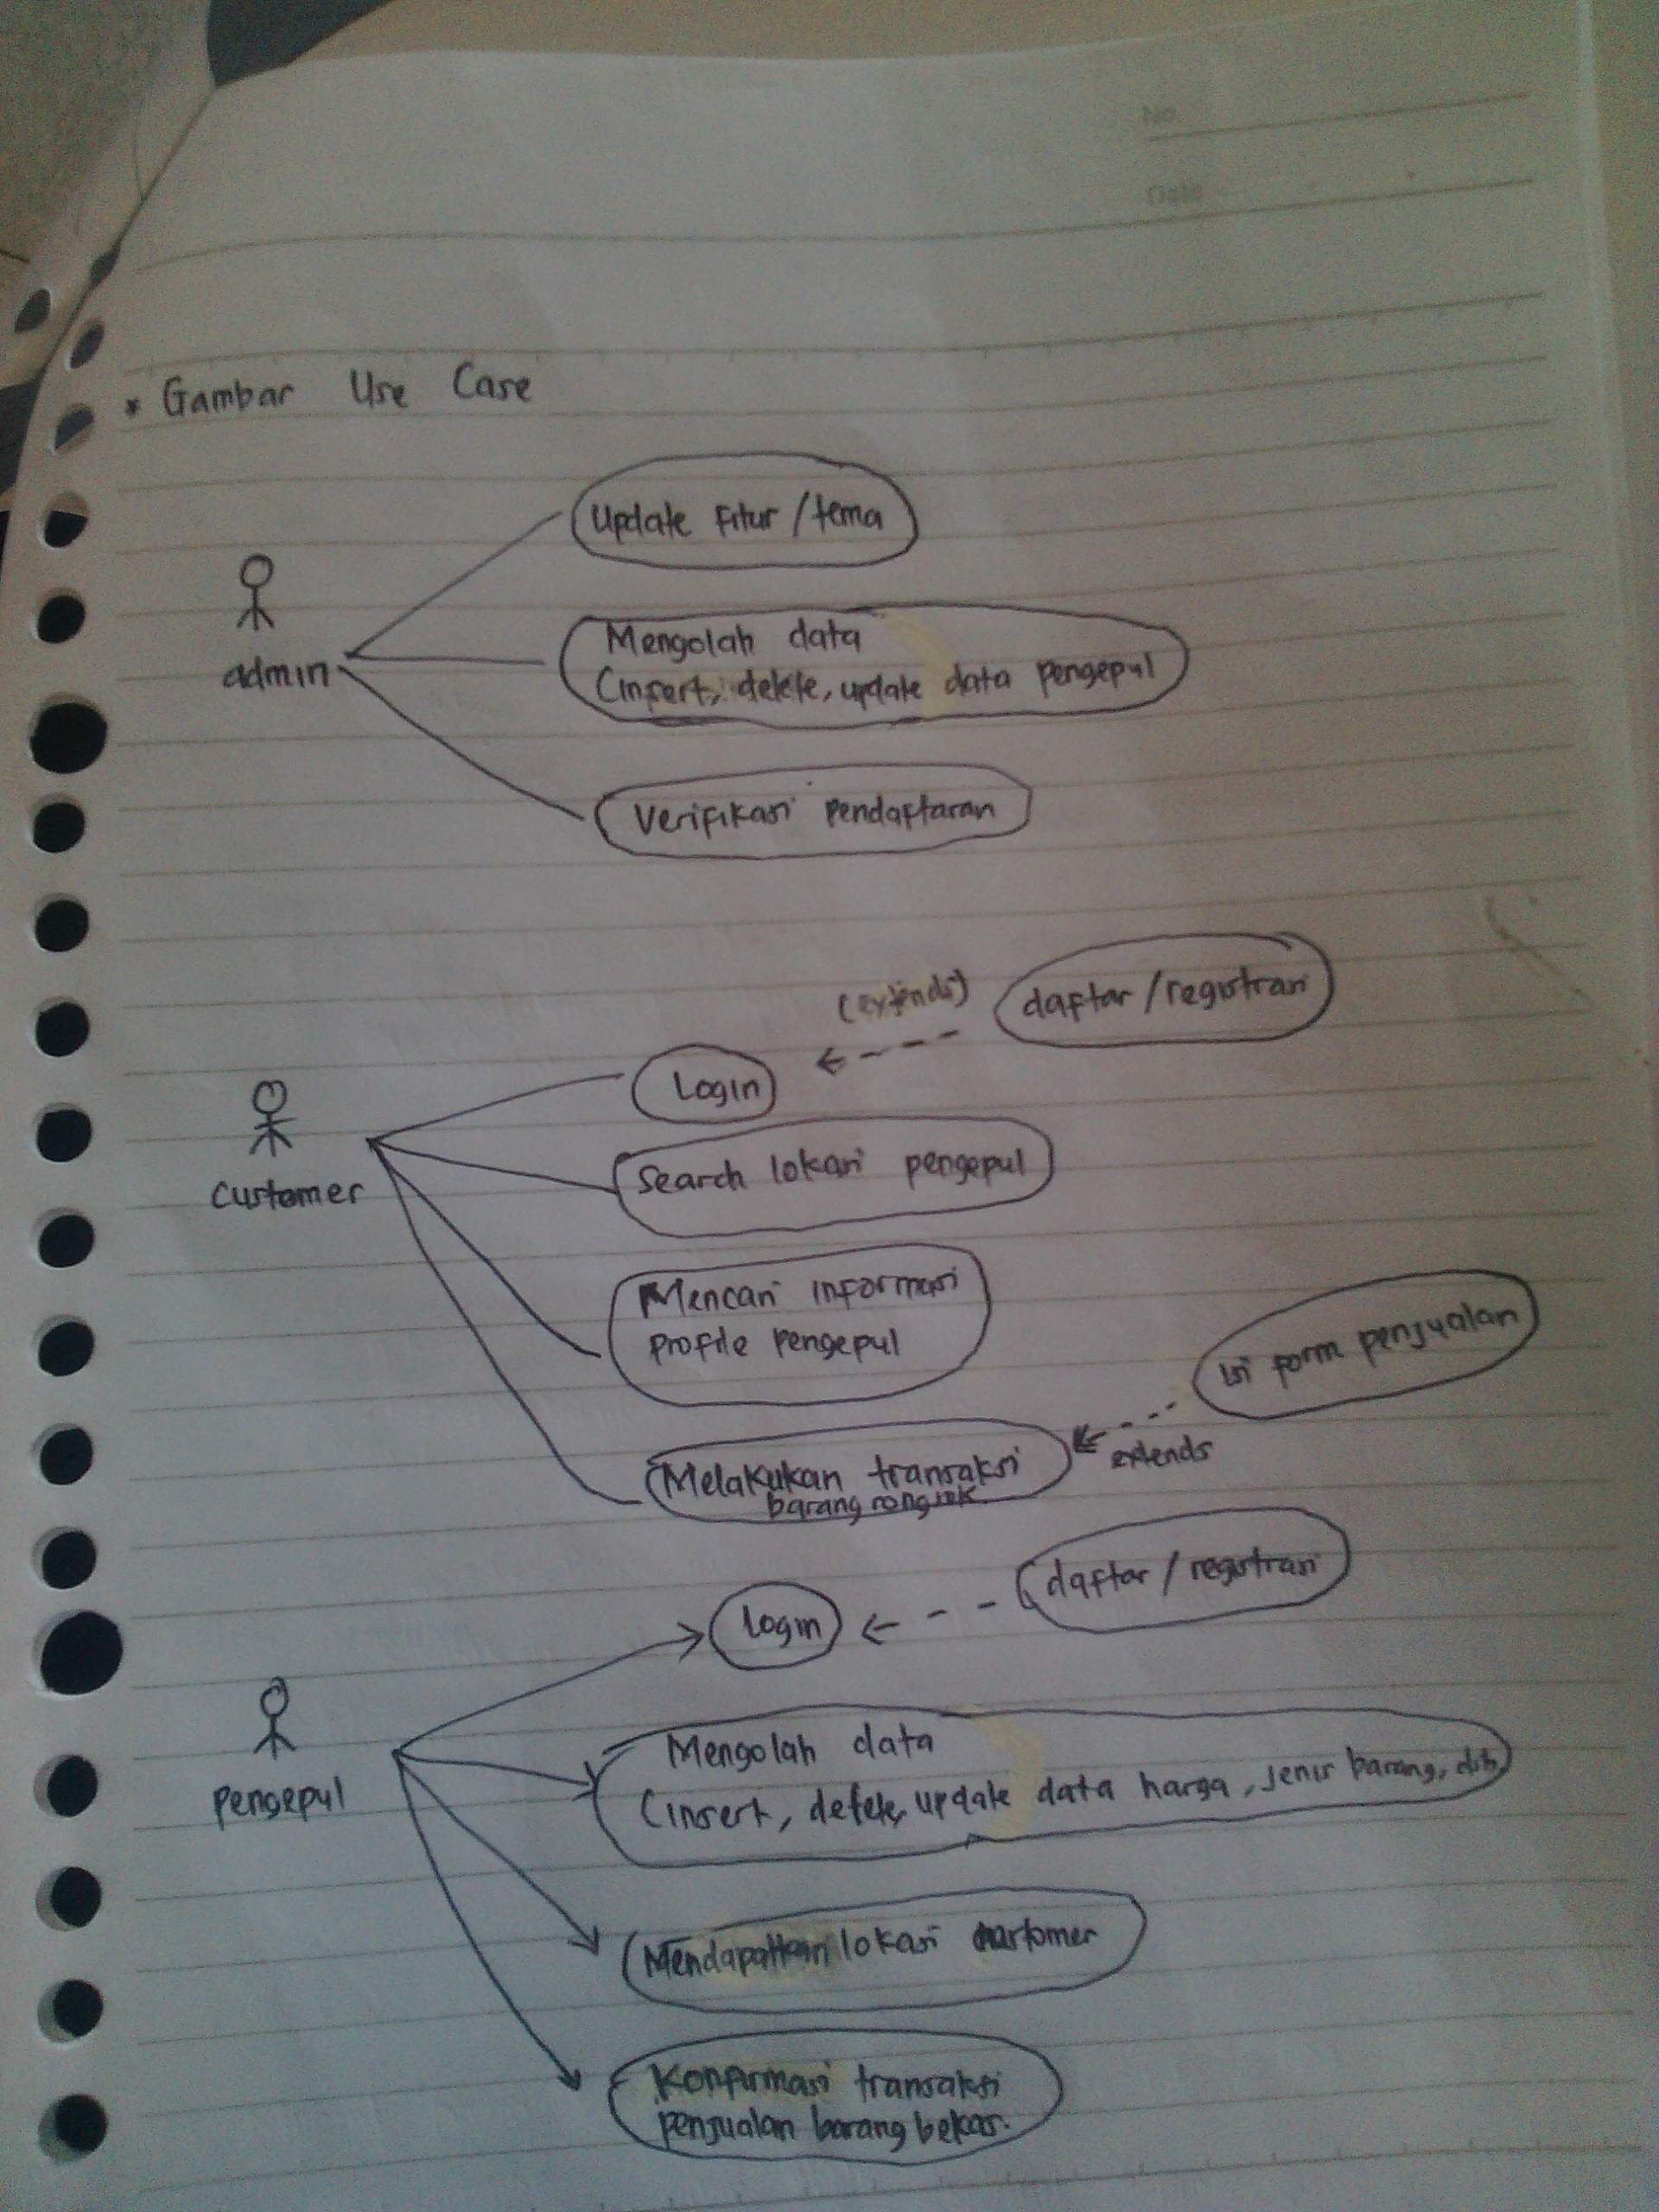 No.
Date
* Gambar Use Case
Update Fitur / tema
admin
Mengolah data
(insert, delete, update data pengepul
Verifikasi pendaftaran
(extends)
daftar / registrasi
Login
Customer
Search lokasi pengepul
Mencari informasi
profile pengepul
isi form penjualan
extends
Melakukan transaksi
barang rongsok
daftar / registrasi
Login
pengepul
Mengolah data
(insert, delete, update data harga, jenis barang, dih
Mendapatkan lokasi customer
Konfirmasi transaksi
penjualan barang bekas.